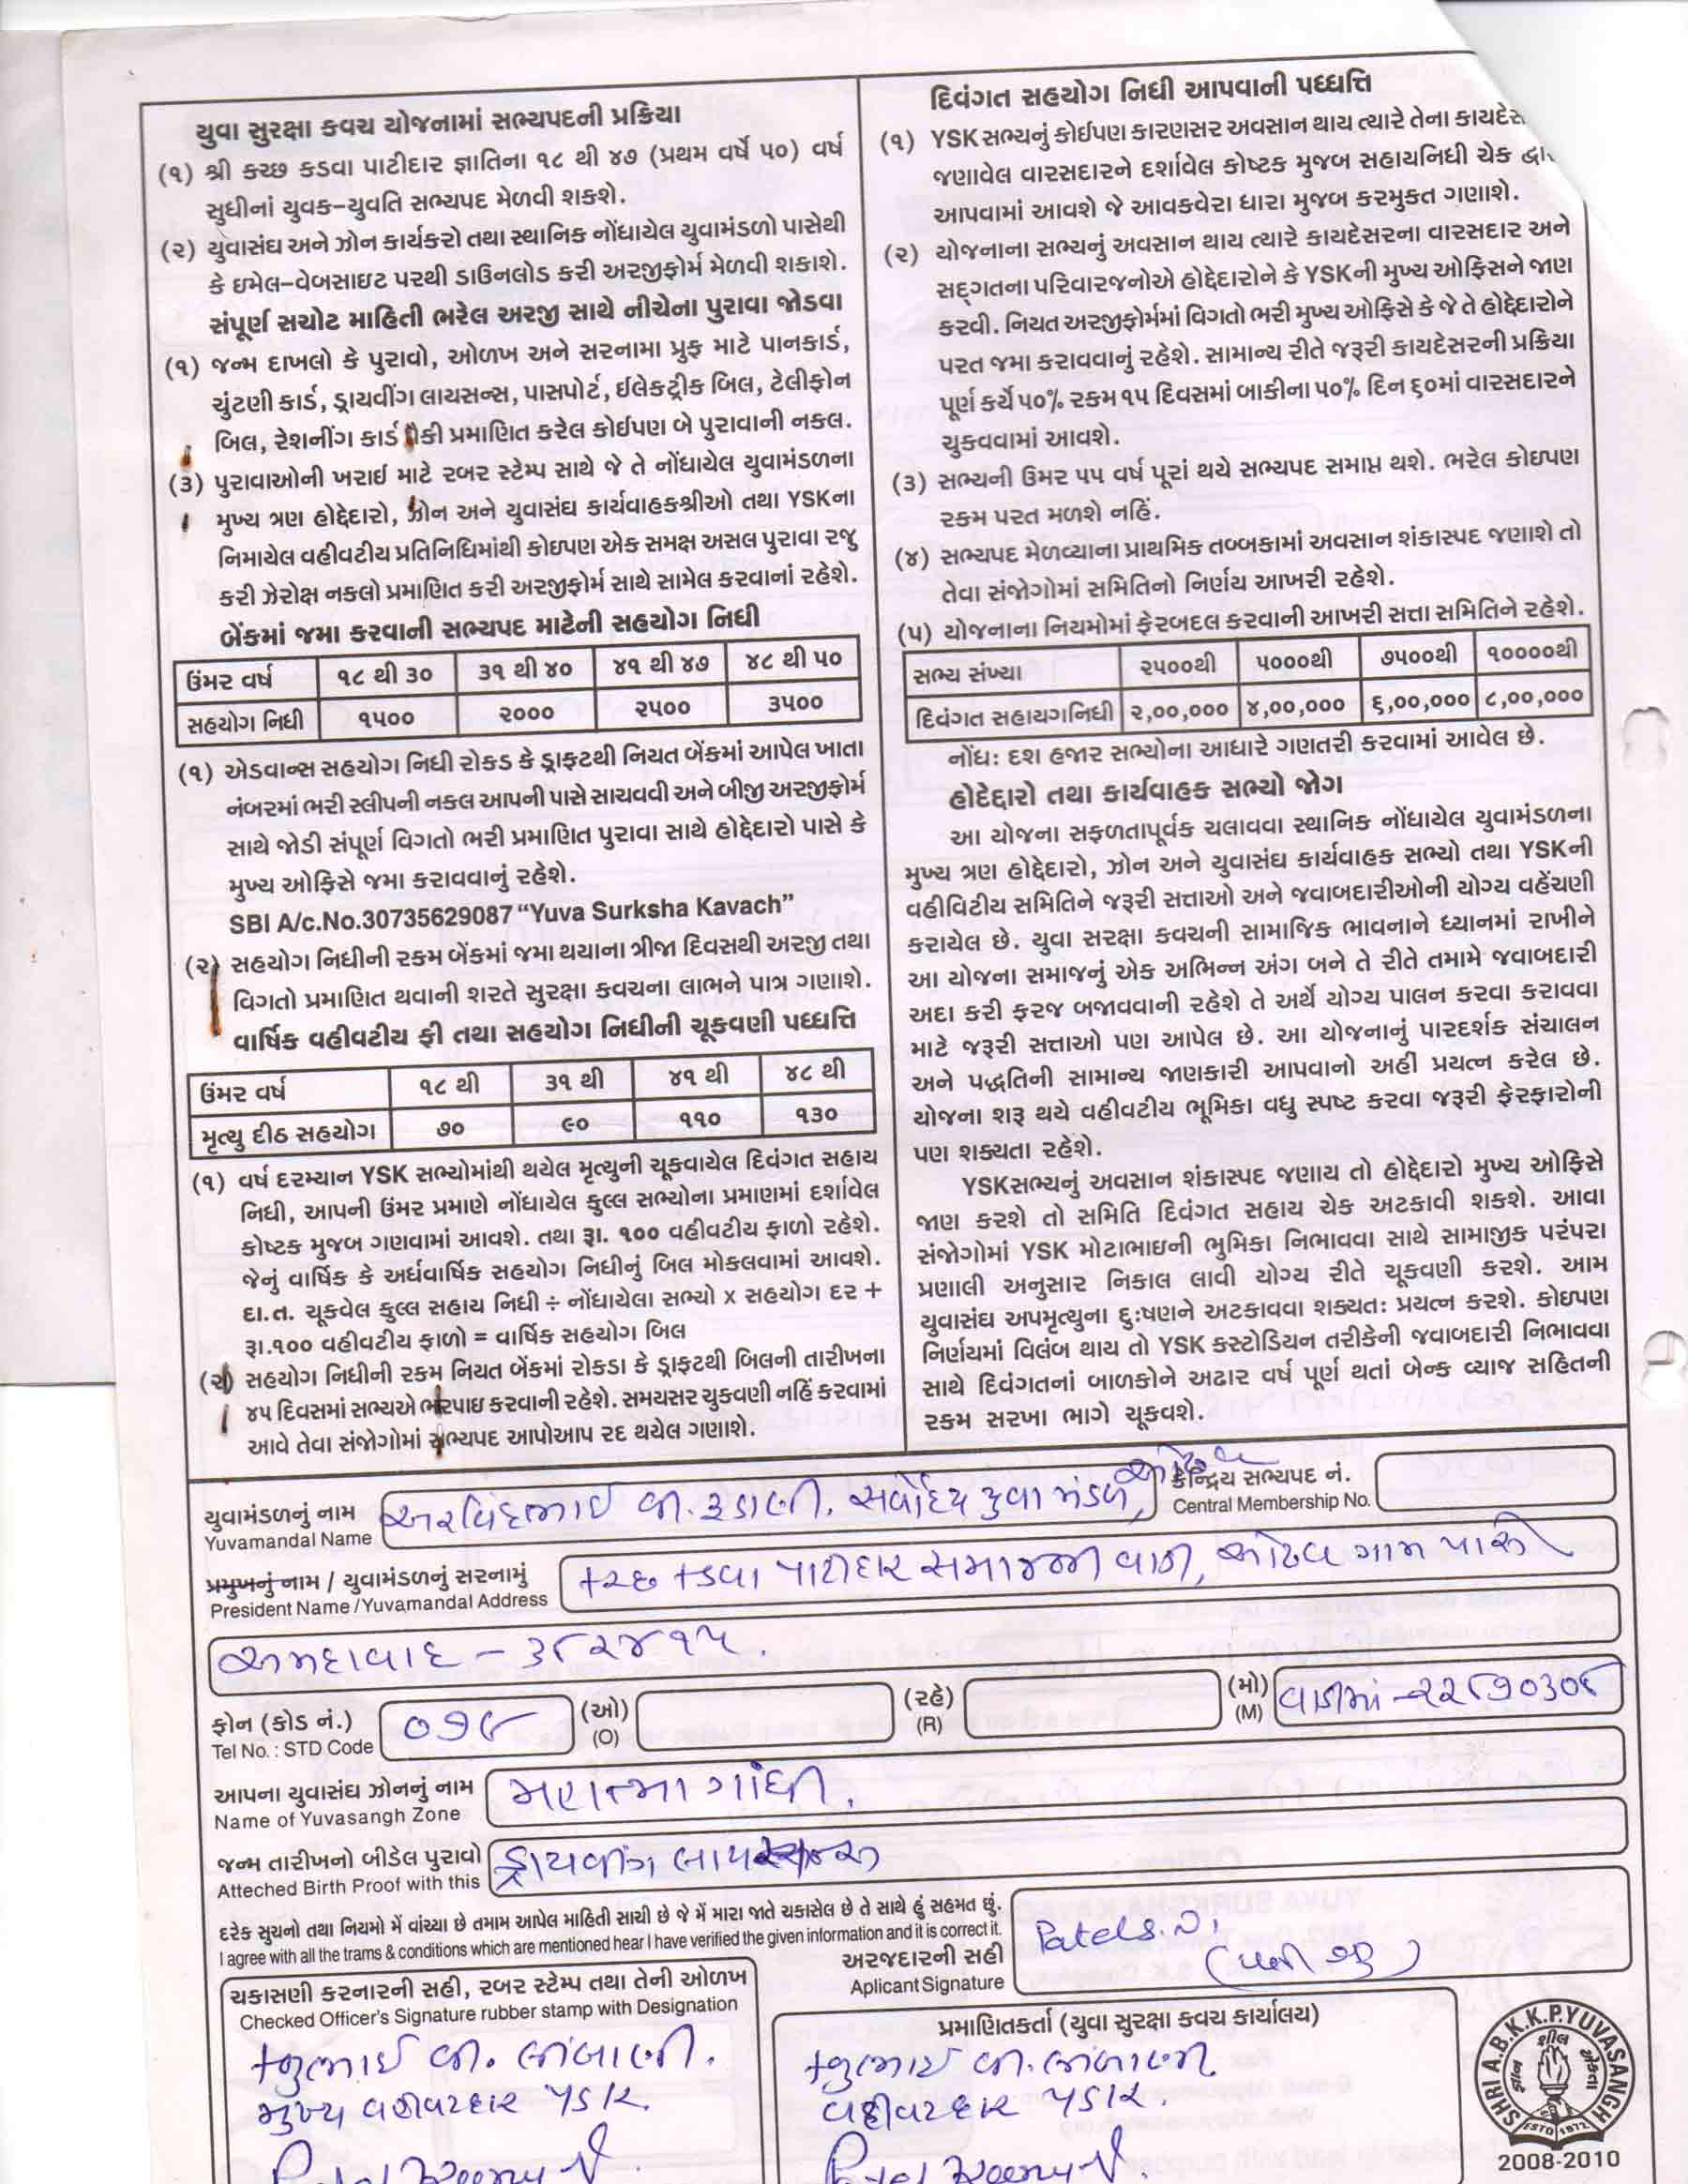 યુવા સુરક્ષા કવચ યોજનામાં સભ્યપદની પ્રક્રિયા
(૧) શ્રી કચ્છ કડવા પાટીદાર જ્ઞાતિના ૧૮ થી ૪૭ (પ્રથમ વર્ષે ૫૦) વર્ષ
સુધીનાં યુવક-યુવતિ સભ્યપદ મેળવી શકશે.
(૨) યુવાસંઘ અને ઝોન કાર્યકરો તથા સ્થાનિક નોંધાયેલ યુવામંડળો પાસેથી
કે ઇમેલ-વેબસાઇટ પરથી ડાઉનલોડ કરી અરજીફોર્મ મેળવી શકાશે.
સંપૂર્ણ સચોટ માહિતી ભરેલ અરજી સાથે નીચેના પુરાવા જોડવા
(૧) જન્મ દાખલો કે પુરાવો, ઓળખ અને સરનામા પ્રુફ માટે પાનકાર્ડ,
ચુંટણી કાર્ડ, ડ્રાયવીંગ લાયસન્સ, પાસપોર્ટ, ઈલેકટ્રીક બિલ, ટેલીફોન
બિલ, રેશનીંગ કાર્ડ પૈકી પ્રમાણિત કરેલ કોઈપણ બે પુરાવાની નકલ.
(૩) પુરાવાઓની ખરાઈ માટે રબર સ્ટેમ્પ સાથે જે તે નોંધાયેલ યુવામંડળના
મુખ્ય ત્રણ હોદ્દેદારો, ઝોન અને યુવાસંઘ કાર્યવાહકશ્રીઓ તથા YSKના
નિમાયેલ વહીવટીય પ્રતિનિધિમાંથી કોઇપણ એક સમક્ષ અસલ પુરાવા રજુ
કરી ઝેરોક્ષ નકલો પ્રમાણિત કરી અરજીફોર્મ સાથે સામેલ કરવાનાં રહેશે.
બેંકમાં જમા કરવાની સભ્યપદ માટેની સહયોગ નિધી
ઉંમર વર્ષ ૧૮ થી ૩૦ ૩૧ થી ૪૦ ૪૧ થી ૪૭ ૪૮ થી ૫૦
સહયોગ નિધી ૧૫૦૦ ૨૦૦૦ ૨૫૦૦ ૩૫૦૦
(૧) એડવાન્સ સહયોગ નિધી રોકડ કે ડ્રાફટથી નિયત બેંકમાં આપેલ ખાતા
નંબરમાં ભરી સ્લીપની નકલ આપની પાસે સાચવવી અને બીજી અરજીફોર્મ
સાથે જોડી સંપૂર્ણ વિગતો ભરી પ્રમાણિત પુરાવા સાથે હોદ્દેદારો પાસે કે
મુખ્ય ઓફિસે જમા કરાવવાનું રહેશે.
SBI A/c.No.30735629087 “Yuva Surksha Kavach”
(૨) સહયોગ નિધીની રકમ બેંકમાં જમા થયાના ત્રીજા દિવસથી અરજી તથા
વિગતો પ્રમાણિત થવાની શરતે સુરક્ષા કવચના લાભને પાત્ર ગણાશે.
વાર્ષિક વહીવટીય ફી તથા સહયોગ નિધીની ચૂકવણી પધ્ધતિ
ઉંમર વર્ષ ૧૮ થી ૩૧ થી ૪૧ થી ૪૮ થી
મૃત્યુ દીઠ સહયોગ ૭૦ ૯૦ ૧૧૦ ૧૩૦
(૧) વર્ષ દરમ્યાન YSK સભ્યોમાંથી થયેલ મૃત્યુની ચૂકવાયેલ દિવંગત સહાય
નિધી, આપની ઉંમર પ્રમાણે નોંધાયેલ કુલ્લ સભ્યોના પ્રમાણમાં દર્શાવેલ
કોષ્ટક મુજબ ગણવામાં આવશે. તથા રૂા. ૧૦૦ વહીવટીય ફાળો રહેશે.
જેનું વાર્ષિક કે અર્ધવાર્ષિક સહયોગ નિધીનું બિલ મોકલવામાં આવશે.
દા.ત. ચૂકવેલ કુલ્લ સહાય નિધી ÷ નોંધાયેલા સભ્યો x સહયોગ દર +
રૂા.૧૦૦ વહીવટીય ફાળો = વાર્ષિક સહયોગ બિલ
(૨) સહયોગ નિધીની રકમ નિયત બેંકમાં રોકડા કે ડ્રાફટથી બિલની તારીખના
૪૫ દિવસમાં સભ્યએ ભરપાઇ કરવાની રહેશે. સમયસર ચુકવણી નહિં કરવામાં
આવે તેવા સંજોગોમાં સભ્યપદ આપોઆપ રદ થયેલ ગણાશે.
દિવંગત સહયોગ નિધી આપવાની પધ્ધતિ
(૧) YSK સભ્યનું કોઈપણ કારણસર અવસાન થાય ત્યારે તેના
જણાવેલ વારસદારને દર્શાવેલ કોષ્ટક મુજબ સહાયનિધી ચેક
આપવામાં આવશે જે આવકવેરા ધારા મુજબ કરમુકત ગણાશે.
(૨) યોજનાના સભ્યનું અવસાન થાય ત્યારે કાયદેસરના વારસદાર અને
સદ્ગતના પરિવારજનોએ હોદ્દેદારોને કે YSKની મુખ્ય ઓફિસને જાણ
કરવી. નિયત અરજીફોર્મમાં વિગતો ભરી મુખ્ય ઓફિસે કે જે તે હોદ્દેદારોને
પરત જમા કરાવવાનું રહેશે. સામાન્ય રીતે જરૂરી કાયદેસરની પ્રક્રિયા
પૂર્ણ કર્યે ૫૦% રકમ ૧૫ દિવસમાં બાકીના ૫૦% દિન ૬૦માં વારસદારને
ચુકવવામાં આવશે.
(૩) સભ્યની ઉમર ૫૫ વર્ષ પૂરાં થયે સભ્યપદ સમાપ્ત થશે. ભરેલ કોઇપણ
રકમ પરત મળશે નહિં.
(૪) સભ્યપદ મેળવ્યાના પ્રાથમિક તબ્બકામાં અવસાન શંકાસ્પદ જણાશે તો
તેવા સંજોગોમાં સમિતિનો નિર્ણય આખરી રહેશે.
(૫) યોજનાના નિયમોમાં ફેરબદલ કરવાની આખરી સત્તા સમિતિને રહેશે.
સભ્ય સંખ્યા ૨૫૦૦થી ૫૦૦૦થી ૭૫૦૦થી ૧૦૦૦૦થી
દિવંગત સહાયગનિધી ૨,૦૦,૦૦૦ ૪,૦૦,૦૦૦ ૬,૦૦,૦૦૦ ૮,૦૦,૦૦૦
નોંધ: દશ હજાર સભ્યોના આધારે ગણતરી કરવામાં આવેલ છે.
હોદેદ્દારો તથા કાર્યવાહક સભ્યો જોગ
આ યોજના સફળતાપૂર્વક ચલાવવા સ્થાનિક નોંધાયેલ યુવામંડળના
મુખ્ય ત્રણ હોદ્દેદારો, ઝોન અને યુવાસંઘ કાર્યવાહક સભ્યો તથા YSKની
વહીવિટીય સમિતિને જરૂરી સત્તાઓ અને જવાબદારીઓની યોગ્ય વહેંચણી
કરાયેલ છે. યુવા સરક્ષા કવચની સામાજિક ભાવનાને ધ્યાનમાં રાખીને
આ યોજના સમાજનું એક અભિન્ન અંગ બને તે રીતે તમામે જવાબદારી
અદા કરી ફરજ બજાવવાની રહેશે તે અર્થે યોગ્ય પાલન કરવા કરાવવા
માટે જરૂરી સત્તાઓ પણ આપેલ છે. આ યોજનાનું પારદર્શક સંચાલન
અને પદ્ધતિની સામાન્ય જાણકારી આપવાનો અહીં પ્રયત્ન કરેલ છે.
યોજના શરૂ થયે વહીવટીય ભૂમિકા વધુ સ્પષ્ટ કરવા જરૂરી ફેરફારોની
પણ શક્યતા રહેશે.
YSKસભ્યનું અવસાન શંકાસ્પદ જણાય તો હોદ્દેદારો મુખ્ય ઓફિસે
જાણ કરશે તો સમિતિ દિવંગત સહાય ચેક અટકાવી શકશે. આવા
સંજોગોમાં YSK મોટાભાઇની ભુમિકા નિભાવવા સાથે સામાજીક પરંપરા
પ્રણાલી અનુસાર નિકાલ લાવી યોગ્ય રીતે ચૂકવણી કરશે. આમ
યુવાસંઘ અપમૃત્યુના દુઃષણને અટકાવવા શક્યતઃ પ્રયત્ન કરશે. કોઇપણ
નિર્ણયમાં વિલંબ થાય તો YSK કસ્ટોડિયન તરીકેની જવાબદારી નિભાવવા
સાથે દિવંગતનાં બાળકોને અઢાર વર્ષ પૂર્ણ થતાં બેન્ક વ્યાજ સહિતની
રકમ સરખા ભાગે ચૂકવશે.
યુવામંડળનું નામ અરવિંદભાઈ વી. રૂડાણી. સર્વોદય યુવા મંડળ, ઓઢવ કેન્દ્રિય સભ્યપદ નં.
Yuvamandal Name Central Membership No.
પ્રમુખનું નામ / યુવામંડળનું સરનામું કચ્છ કડવા પાટીદાર સમાજની વાડી, ઓઢવ ગામ પાસે
President Name/Yuvamandal Address
અમદાવાદ - ૩૮૨૪૧૫.
ફોન (કોડ નં.) ૦૭૯ (ઓ) (રહે) (મો) વાડીમાં - ૨૨૮૭૦૩૦૬
Tel No. : STD Code (O) (R) (M)
આપના યુવાસંઘ ઝોનનું નામ મહાત્મા ગાંધી.
Name of Yuvasangh Zone
જન્મ તારીખનો બીડેલ પુરાવો ડ્રાયવીંગ
Atteched Birth Proof with this
દરેક સુચનો તથા નિયમો મેં વાંચ્યા છે તમામ આપેલ માહિતી સાચી છે જે મેં મારા જાતે ચકાસેલ છે તે સાથે હું સહમત છું.
I agree with all the trams & conditions which are mentioned hear I have verified the given information and it is correct it.
અરજદારની સહી
Aplicant Signature
ચકાસણી કરનારની સહી, રબર સ્ટેમ્પ તથા તેની ઓળખ
Checked Officer's Signature rubber stamp with Designation
કનુભાઈ વી. લીંબાણી.
મુખ્ય વહીવટદાર
પ્રમાણિતકર્તા (યુવા સુરક્ષા કવચ કાર્યાલય)
કનુભાઈ વી. લીંબાણી
વહીવટદાર
SHRI A.B.K.K.P. YUVASANGH
ESTD 1972
2008-2010